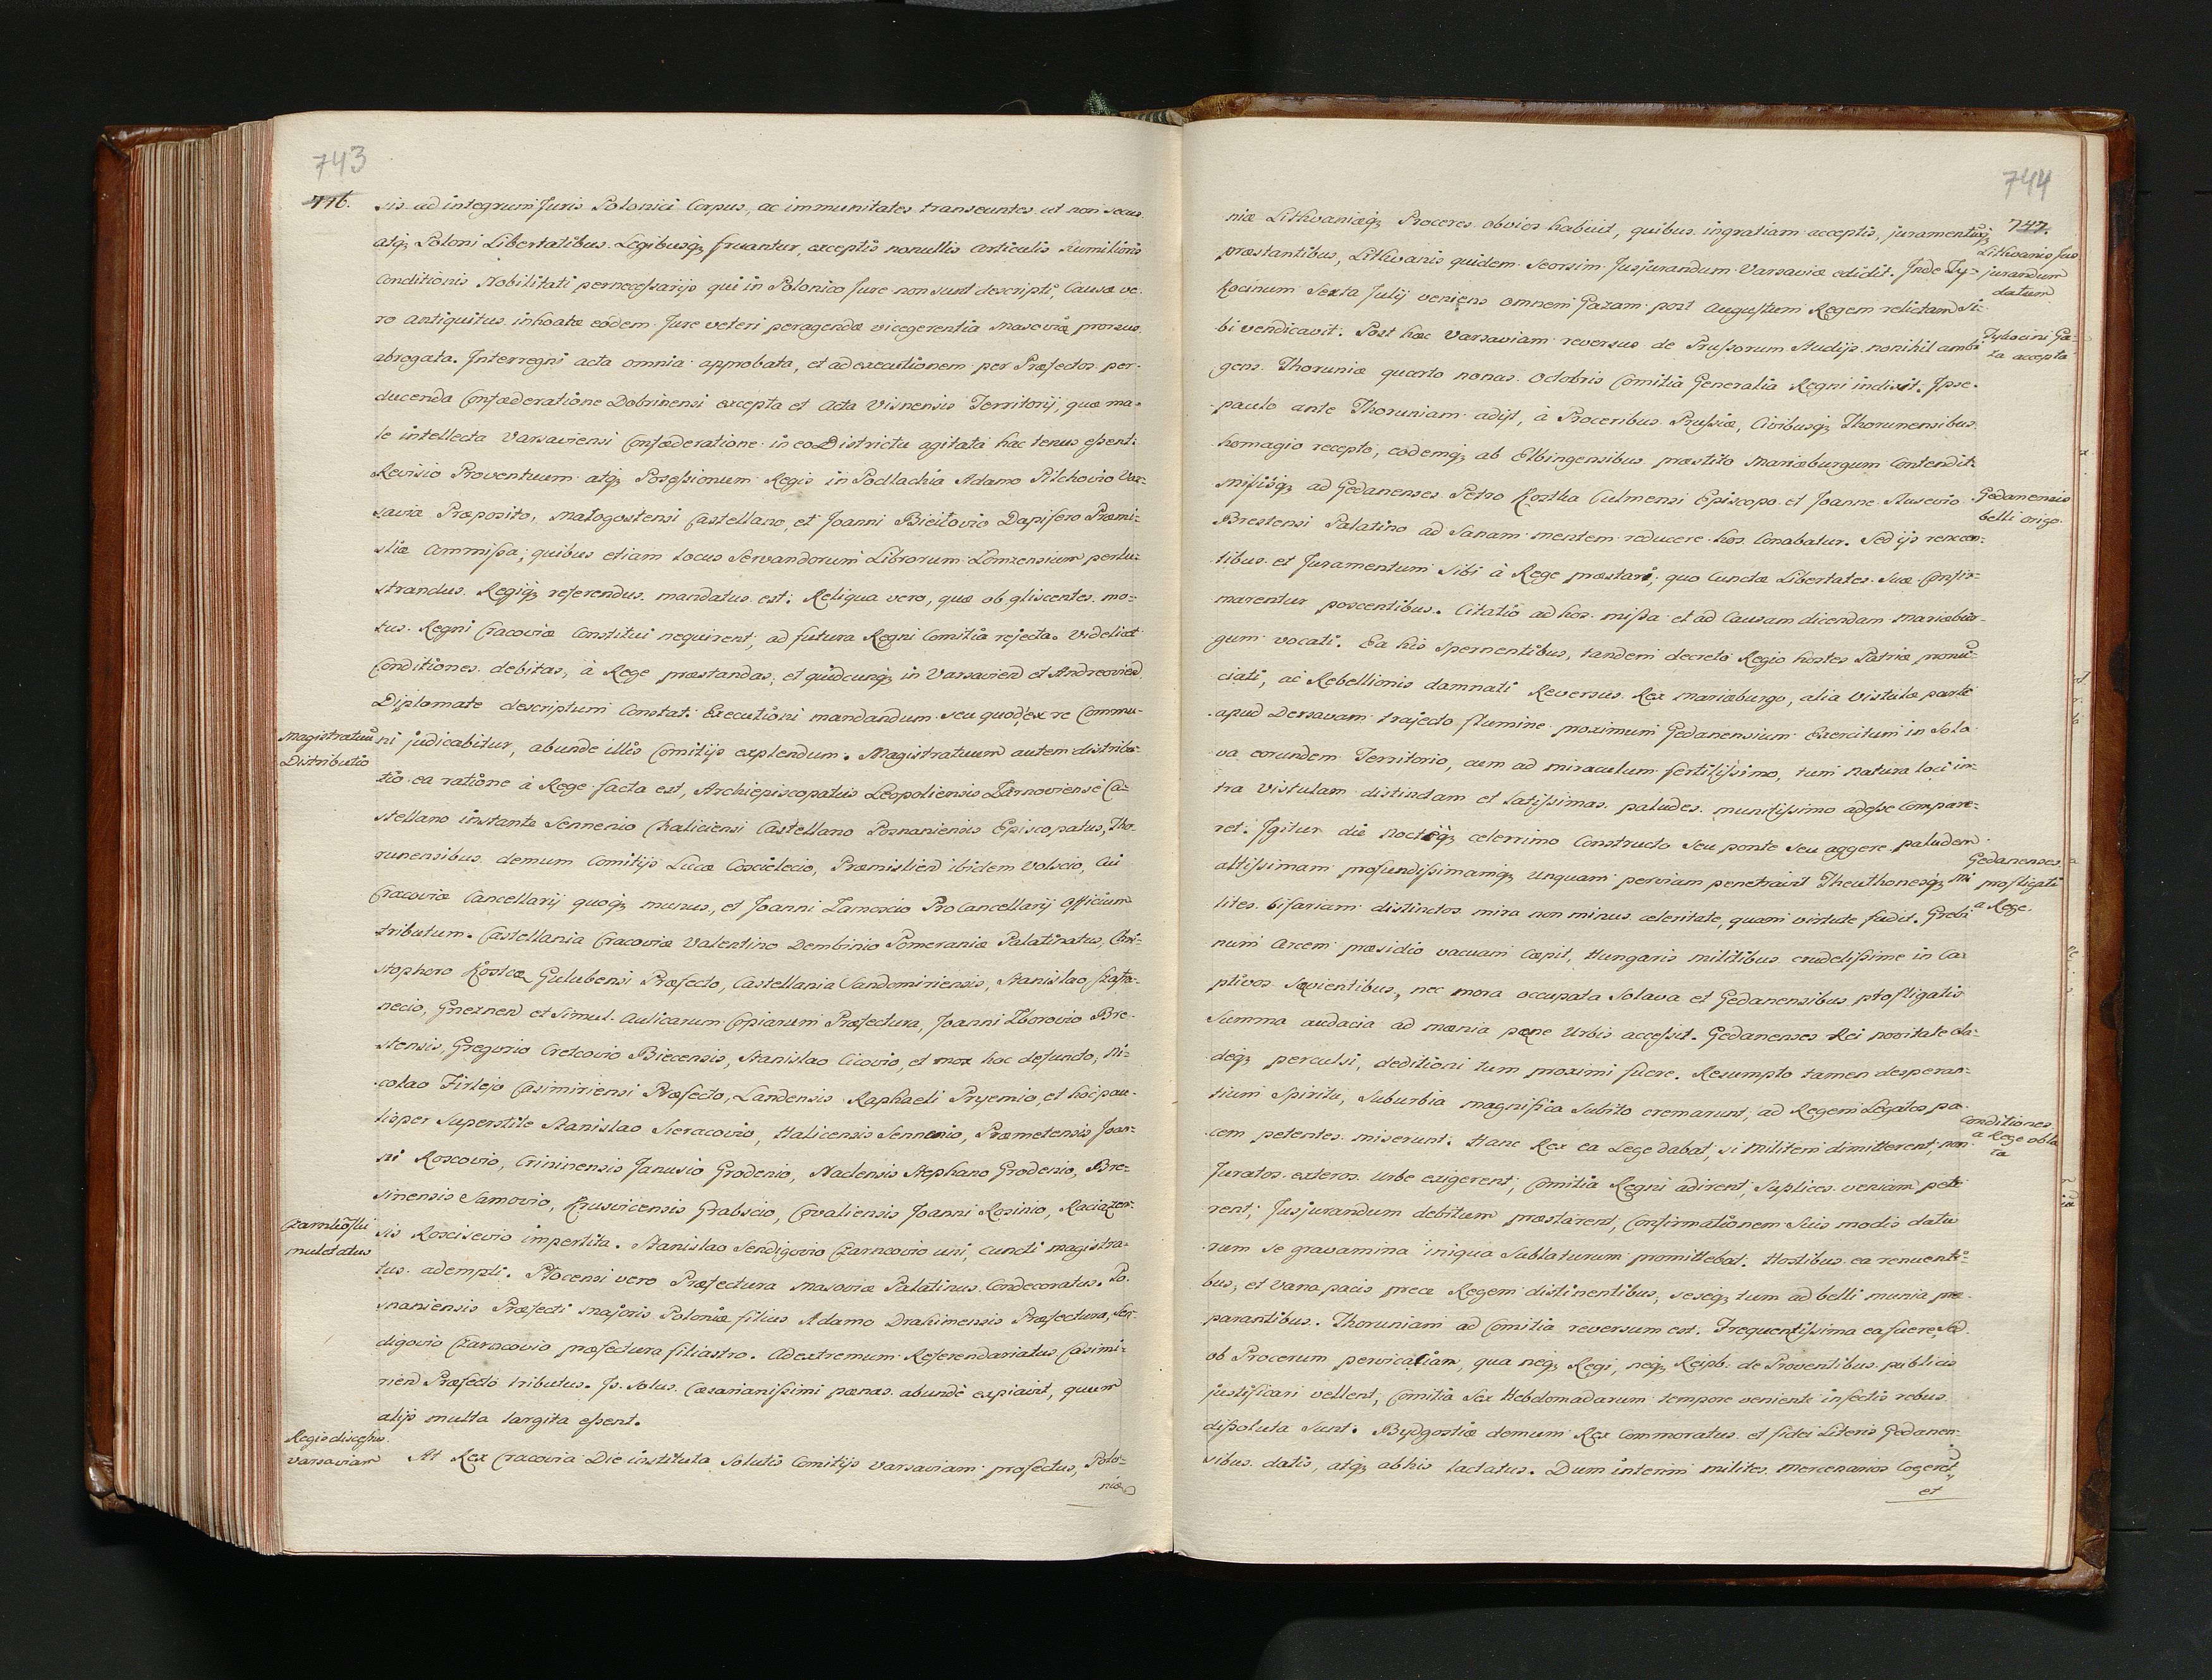 743
776.
sis ad integrum Juris Polonici Corpus, ac immunitates transeuntes ut non secus
atq; Poloni Libertatibus Legibusq; fruantur, exceptis nonullis articulis humilioris
Conditionis Nobilitati pernecessarijs qui in Polonico Jure non sunt descripti, Causæ ve-
ro antiquitus inhoatæ eodem Jure veteri peragendæ vicegerentia Masoviæ prorsus
abrogata. Interregni acta omnia approbata, et ad executionem per Præfectos per-
ducenda Confæderatione Dobrinensi excepta et Acta Visnensis Territorij, quæ ma-
le intellecta Varsaviensi Confæderatione in eo Districtu agitata hac tenus essent.
Revisio Proventuum atq; Possessionum Regis in Podlachia Adamo Pilchovio Var-
saviæ Præposito, Malogostensi Castellano, et Joanni Bieitovio Dapifero Præmi-
sliæ Ammissa; quibus etiam locus Servandorum Librorum Lomzensium perlu-
strandus Regiq; referendus mandatus est: Reliqua vero, quæ ob gliscentes mo-
tus Regni Cracoviæ Constitui nequirent, ad futura Regni Comitia rejecta. Videlicet
Conditiones debitas, à Rege præstandas; et quidcunq; in Varsavien et Andreovien
Diplomate descriptum Constat: Executioni mandandum seu quod ex re Commu-
Magistratuum
Distributio
ni judicabitur, abunde illis Comitijs explendum. Magistratuum autem distribu-
tio ea ratione à Rege facta est, Archiepiscopatus Leopoliensis Tarnoviense Ca-
stellano instante Sennenio Chaliciensi Castellano Posnaniensis Episcopatus, Tho-
runensibus demum Comitijs Lucæ Coscielecio, Præmislien ibidem Volscio, Cui
Cracoviæ Cancellarij quoq; munus, et Joanni Zamoscio Pro Cancellarij Officium
tributum. Castellania Cracoviæ Valentino Dembinio Pomeraniæ Palatinatus, Chri-
stophoro Kostcæ Gulubensi Præfecto, Castellania Sandomiriensis, Stanislao Szafra-
necio, Gneznen et simul Aulicarum Copiarum Præfectura, Joanni Zborovio Bre-
stensis, Gregorio Cretcovio Biecensis, Stanislao Cicovio, et mox hoc defuncto, Ni-
colao Firlejo Casimiriensi Præfecto, Landensis Raphaeli Pryemio, et hoc pau-
lisper Superstite Stanislao Sieracovio, Halicensis Sennenio, Præmetensis Joan-
ni Roscovio, Crininensis Janusio Grodenio, Naclensis Stephano Grodenio, Bre-
sinensis Sarnovio, Krusvicensis Grabscio, Covaliensis Joanni Rosinio, Raciazen-
Czarnkosski
mulctatus
sis Koscisevio impertita. Stanislao Sendigovio Czarncovio uni, cuncti magistra-
tus adempti. Plocensi vero Præfectura Masoviæ Palatinus Condecoratus. Po-
snaniensis Præfecti Majoris Poloniæ filius Adamo Drahimensis Præfectura, Sen-
digovio Czarncovio præfectura filiastro. Ad extremum Referendariatus Casimi-
rien Præfecto tributus. Is solus Cæsarianissimi pænas abundè expiavit, quum
alijs multa largita essent.
Regis discessus
Varsaviam
At Rex Cracovia Die instituta solutis Comitijs Varsaviam profectus, Polo-
niæ
744
747.
niæ Lithvaniæq; Proceres obvios habuit, quibus in gratiam acceptis, juramentumq;
Lithvanis Jus
jurandum
datum
præstantibus, Lithvanis quidem seorsim Jusjurandum Varsaviæ edidit. Inde Ty-
kocinum Sexta Julij veniens omnem Gazam post Augustum Regem relictam si-
Tykocini Ga-
za accepta
bi vendicavit. Post hæc Varsaviam reversus de Prussorum Studijs nonihil ambi
gens Thoruniæ quarto nonas Octobris Comitia Generalia Regni indixit. Ipse
paulo ante Thoruniam adijt, à Proceribus Prussiæ, Civibusq; Thorunensibus
homagio recepto, eodemq; ab Elbingensibus præstito Mariæburgum Contendit:
Gedanensis
belli origo
misisq; ad Gedanenses Petro Kostka Culmensi Episcopo et Joanne Slusevio
Brestensi Palatino ad Sanam mentem reducere hos Conabatur. Sed ijs renuen-
tibus et Juramentum sibi à Rege præstari, quo Cunctæ Libertates suæ Confir-
marentur poscentibus. Citatio ad hos missa et ad Causam dicendam Mariæbur-
gum vocati. Ea his spernentibus, tandem decreto Regio hostes Patriæ pronun-
ciati, ac Rebellionis damnati Reversus Rex Mariæburgo, alia Vistulæ parte
apud Dersavam trajecto flumine proximum Gedanensium Exercitum in Sola-
va eorundem Territorio, cum ad miraculum fertilissimo, tum natura loci in-
tra Vistulam distindam et latissimas paludes munitissimo adesse Compare-
ret. Igitur die noctuq; celerrimo Constructo seu ponte seu aggere paludem
Gedanenses
profligati
a Rege.
altissimam profundissimamq; unquam perviam penetravit Theuthonesq; mi
lites bifariam distinctos mira non minus celeritate, quam virtute fudit. Grebi
num arcem præsidio vacuam Cæpit, Hungaris militibus crudelissime in Ca
ptivos Sævientibus, nec mora occupata Solava et Gedanensibus profligatis
Summa audacia ad mænia pæne Urbis accessit. Gedanenses Rei novitate cla-
deq; perculsi, deditioni tum proximi fuere. Resumpto tamen desperan-
tium Spiritu, Suburbia magnifica subito cremarunt, ad Regem Legatos pa-
Conditiones
a Rege obla
tæ
cem petentes miserunt: Hanc Rex ea Lege dabat, si Militem dimitterent, non
Juratos exteros Urbe exigerent, Comitia Regni adirent, Suplices veniam pete
rent, Jusjurandum debitum præstarent, Confirmationem suis modis datu
rum se gravamina iniqua Sublaturum promittebat. Hostibus ea renuenti-
bus, et vana pacis prece Regem distinentibus, seseq; tum ad belli munia præ
parantibus. Thoruniam ad Comitia reversum est. Frequentissima ea fuere, Sed
ob Procerum pervicaciam, qua neq; Regi, neq; Reipb: de Proventibus publicis
justificari vellent, Comitia Sex Hebdomadarum tempore veniente infectis rebus
dissoluta sunt. Bydgostiæ demum Rex Commoratus et fidei Literis Gedanen-
sibus datis, atq; ab his lactatus. Dum interim milites Mercenarios Cogeret,
et